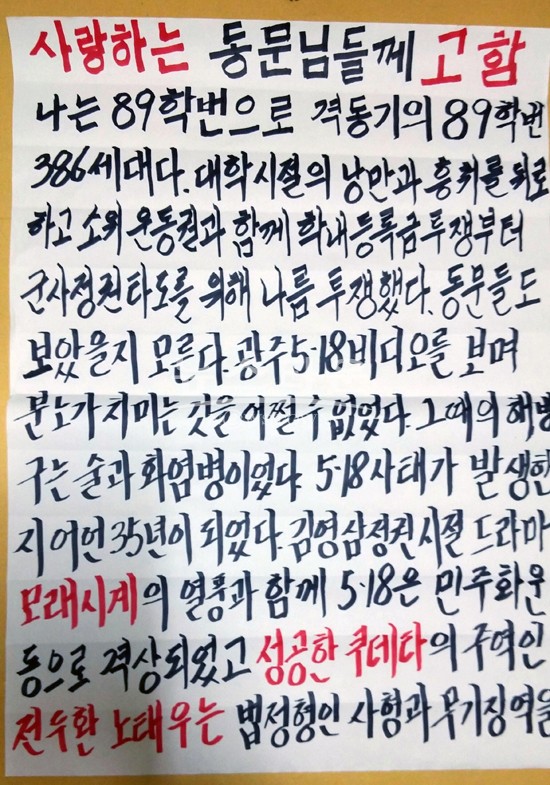 사랑하는 동문님들께 고함
나는 89학번으로 격동기의 89학번
386세대다. 대학시절의 낭만과 흥취를 뒤로
하고 소위 운동권과 함께 학내등록금투쟁부터
군사정권타도를 위해 나름 투쟁했다. 동문들도
보았을지 모른다. 광주 5·18비디오를 보며
분노가 치미는 것을 어쩔 수 없었다. 그때의 해방
구는 술과 화염병이었다. 5·18사태가 발생한
지 어언 35년이 되었다. 김영삼정권시절 드라마
모래시계의 열풍과 함께 5·18은 민주화운
동으로 격상되었고 성공한 쿠데타의 주역인
전두환 노태우는 법정형인 사형과 무기징역을